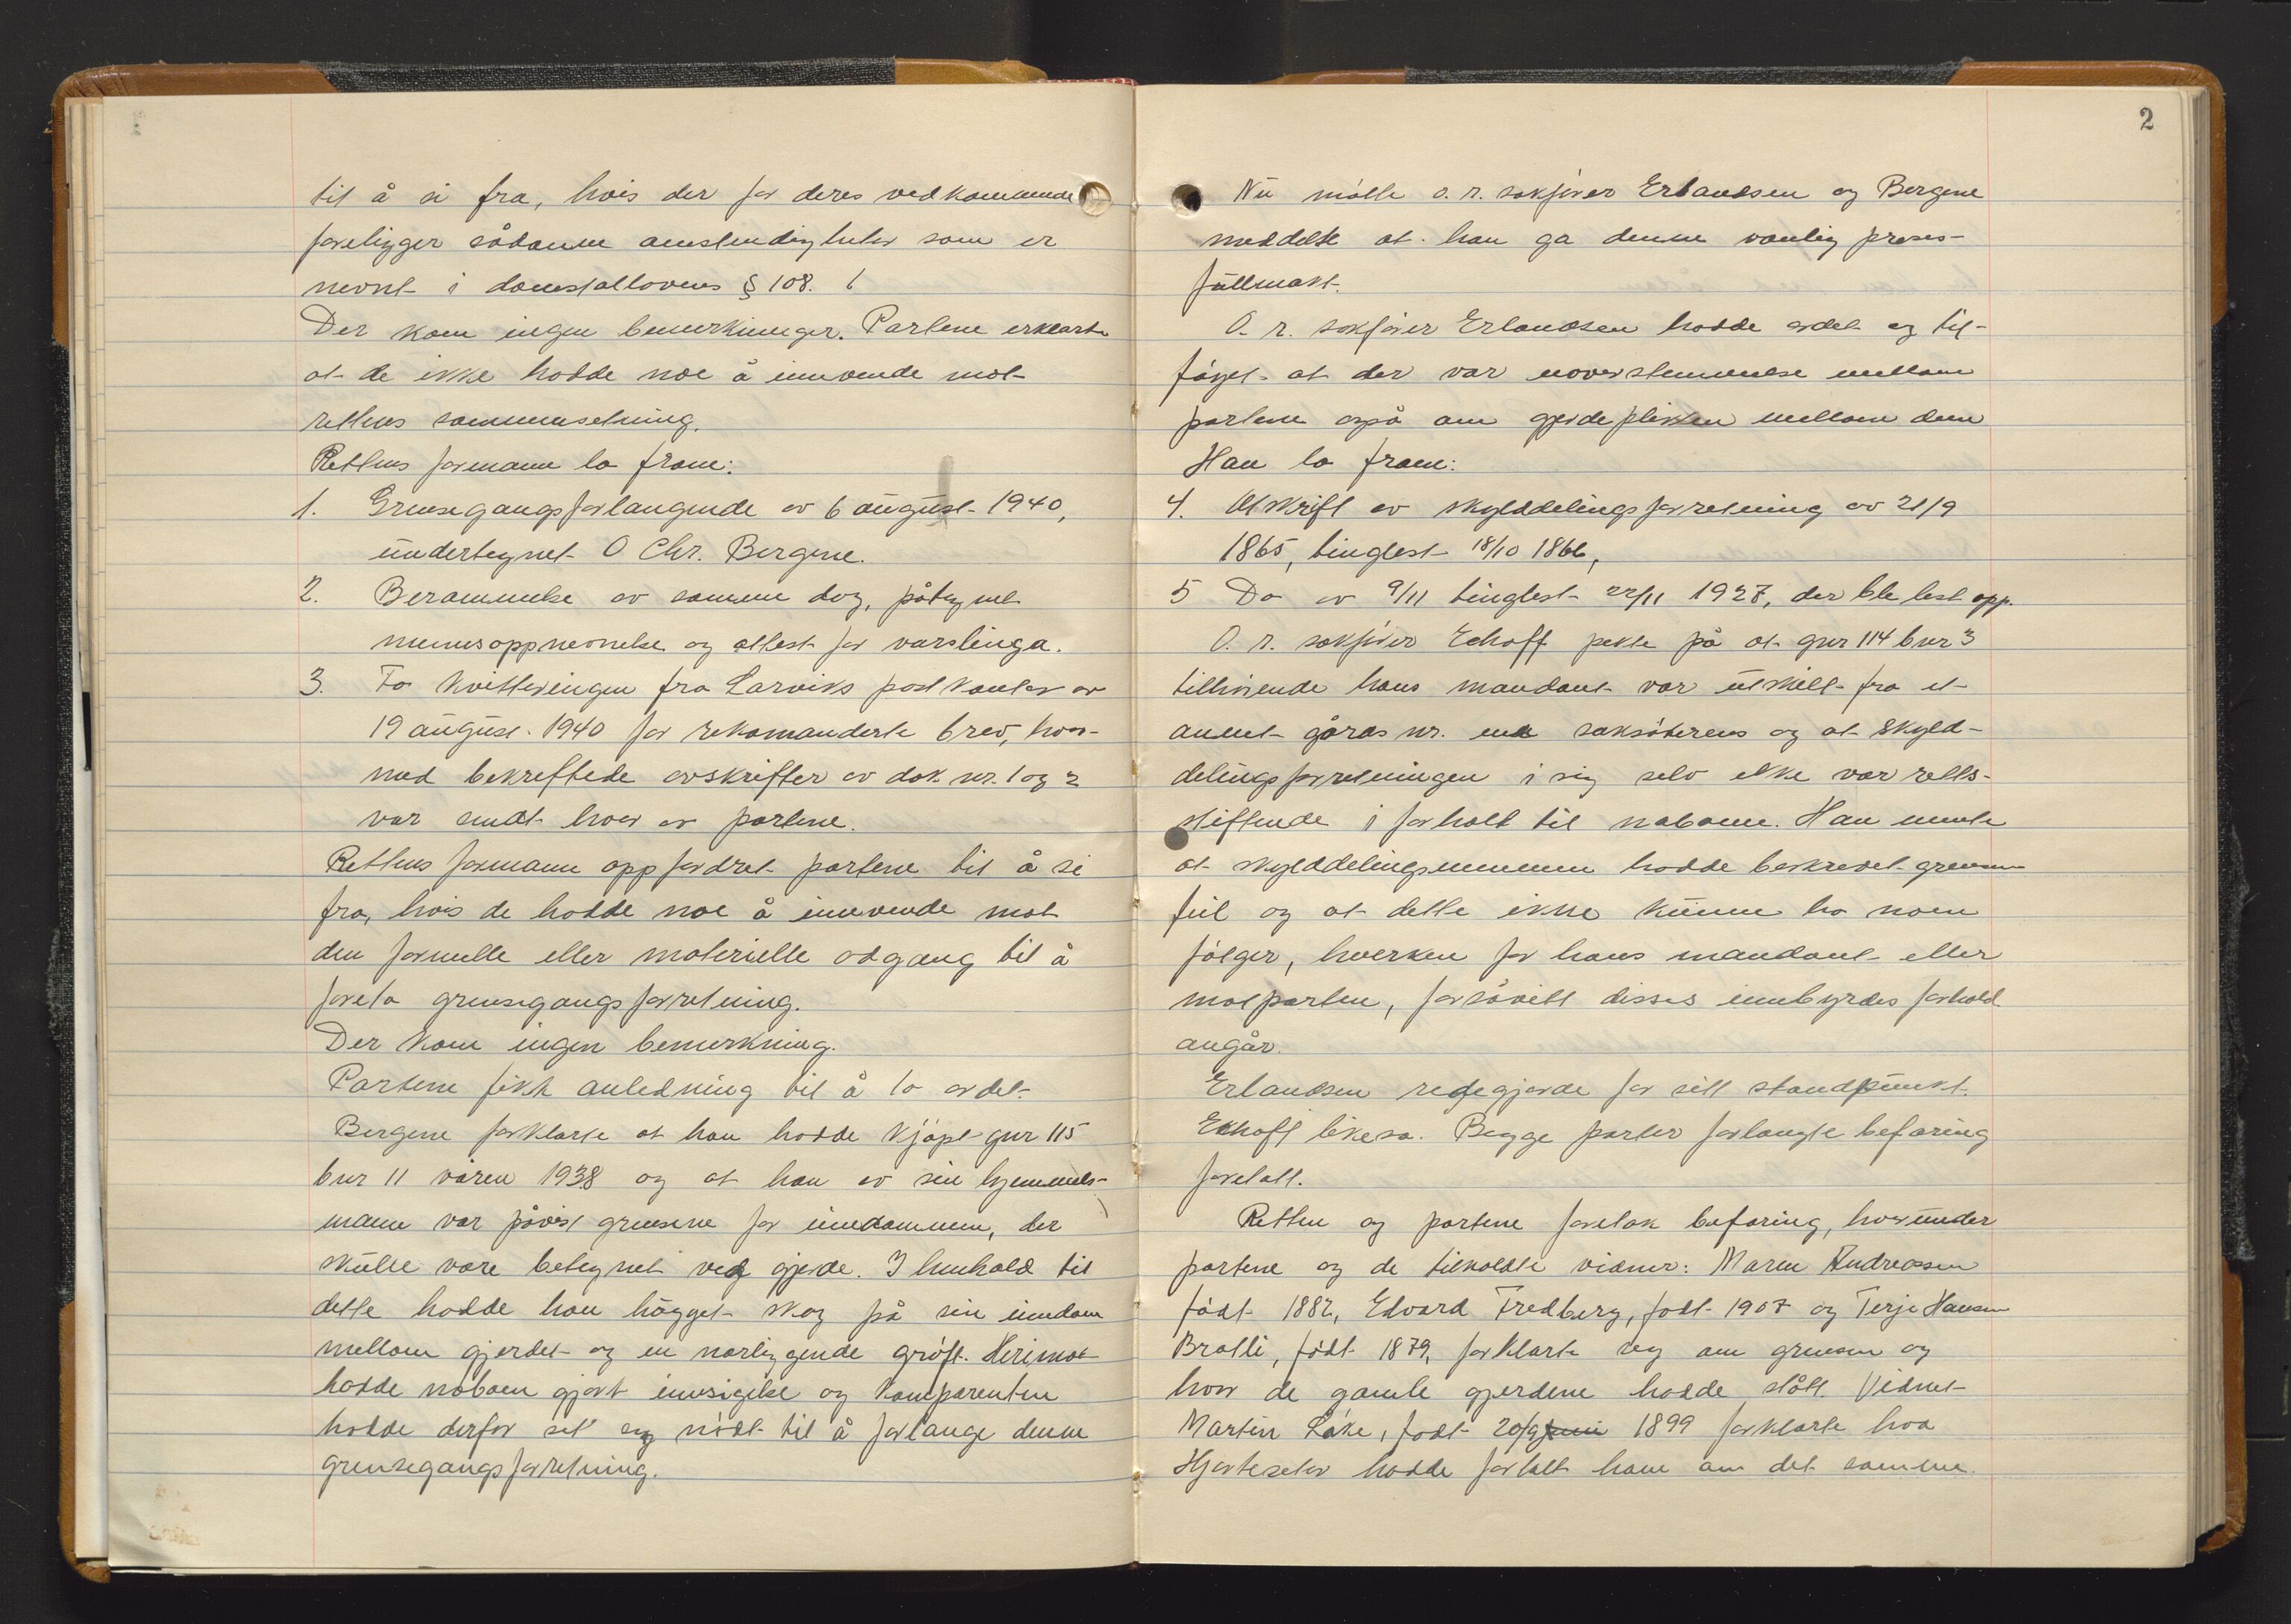 til å si fra, hvis der for deres vedkommende
foreligger sådanne omstendigheter som er
nevnt i domstollovens § 108.
Der kom ingen bemerkninger. Partene erklærte
at de ikke hadde noe å innvende mot
rettens sammensetning.
Rettens formann la fram:
1. Grensegangsforlangende av 6 august 1940,
undertegnet O Chr. Bergene.
2. Berammelse av samme dag, påtegnet
mennsoppnevnelse og attest for varslinga.
3. To kvitteringer fra Larviks postkontor av
19 august 1940 for rekomanderte brev, hvor-
med bekreftede avskrifter av dok. nr. 1 og 2
var sendt hver av partene.
Rettens formann oppfordret partene til å si
fra, hvis de hadde noe å innvende mot
den formelle eller materielle adgang til å
foreta grensegangsforretning.
Der kom ingen bemerkning.
Partene fikk anledning til å ta ordet.
Bergene forklarte at han hadde kjøpt gnr 115
bnr 11 våren 1938 og at han av sin hjemmels-
mann var påvist grensene for eiendommen, der
skulle være betegnet ved gjerde. I henhold til
dette hadde han hugget skog på sin eiendom
mellom gjerdet og en nærliggende grøft. Herimot
hadde naboen gjort innsigelse og komparenten
hadde derfor set seg nødt til å forlange denne
grensegangsforretning.
2
Nu møtte o. r. sakfører Erlandsen og Bergene
meddelte at han ga denne vanlig proses-
fullmakt.
O. r. sakfører Erlandsen hadde ordet og til-
føyet at der var uoverstemmelse mellom
partene også om gjerdeplikten mellom dem
Han la fram:
4. Utskrift av skylddelingsforretning av 21/9
1865, tinglest 18/10 1866,
5 Do av 9/11 tinglest 22/11 1927, der ble lest opp.
O. r. sakfører Eckoff pekte på at gnr 114 bnr 3
tilhørende hans mandant var utskilt fra et
annet gårds nr. enn saksøkerens og at skyld-
delingsforretningen i sig selv ikke var retts-
stiftende i forhold til naboene. Han mente
at skylddelingsmennene hadde beskrevet grensen
feil og at dette ikke kunne ha noen
følger, hverken for hans mandant eller
motparten, forsåvitt disses innbyrdes forhold
angår.
Erlandsen redegjorde for sitt standpunkt.
Ekhoff likeså. Begge parter forlangte befaring
foretatt.
Retten og partene foretok befaring, hvorunder
partene og de tilkaldte vidner: Maren Andreassen
født 1882, Edvard Fredberg, født 1907 og Terje Hansen
Bratli, født 1879, forklarte seg om grensen og
hvor de gamle gjerdene hadde stått. Vidnet
Martin Løke, født 20/9 1899 forklarte hva
Hjerteseter hadde fortalt ham om det samme.